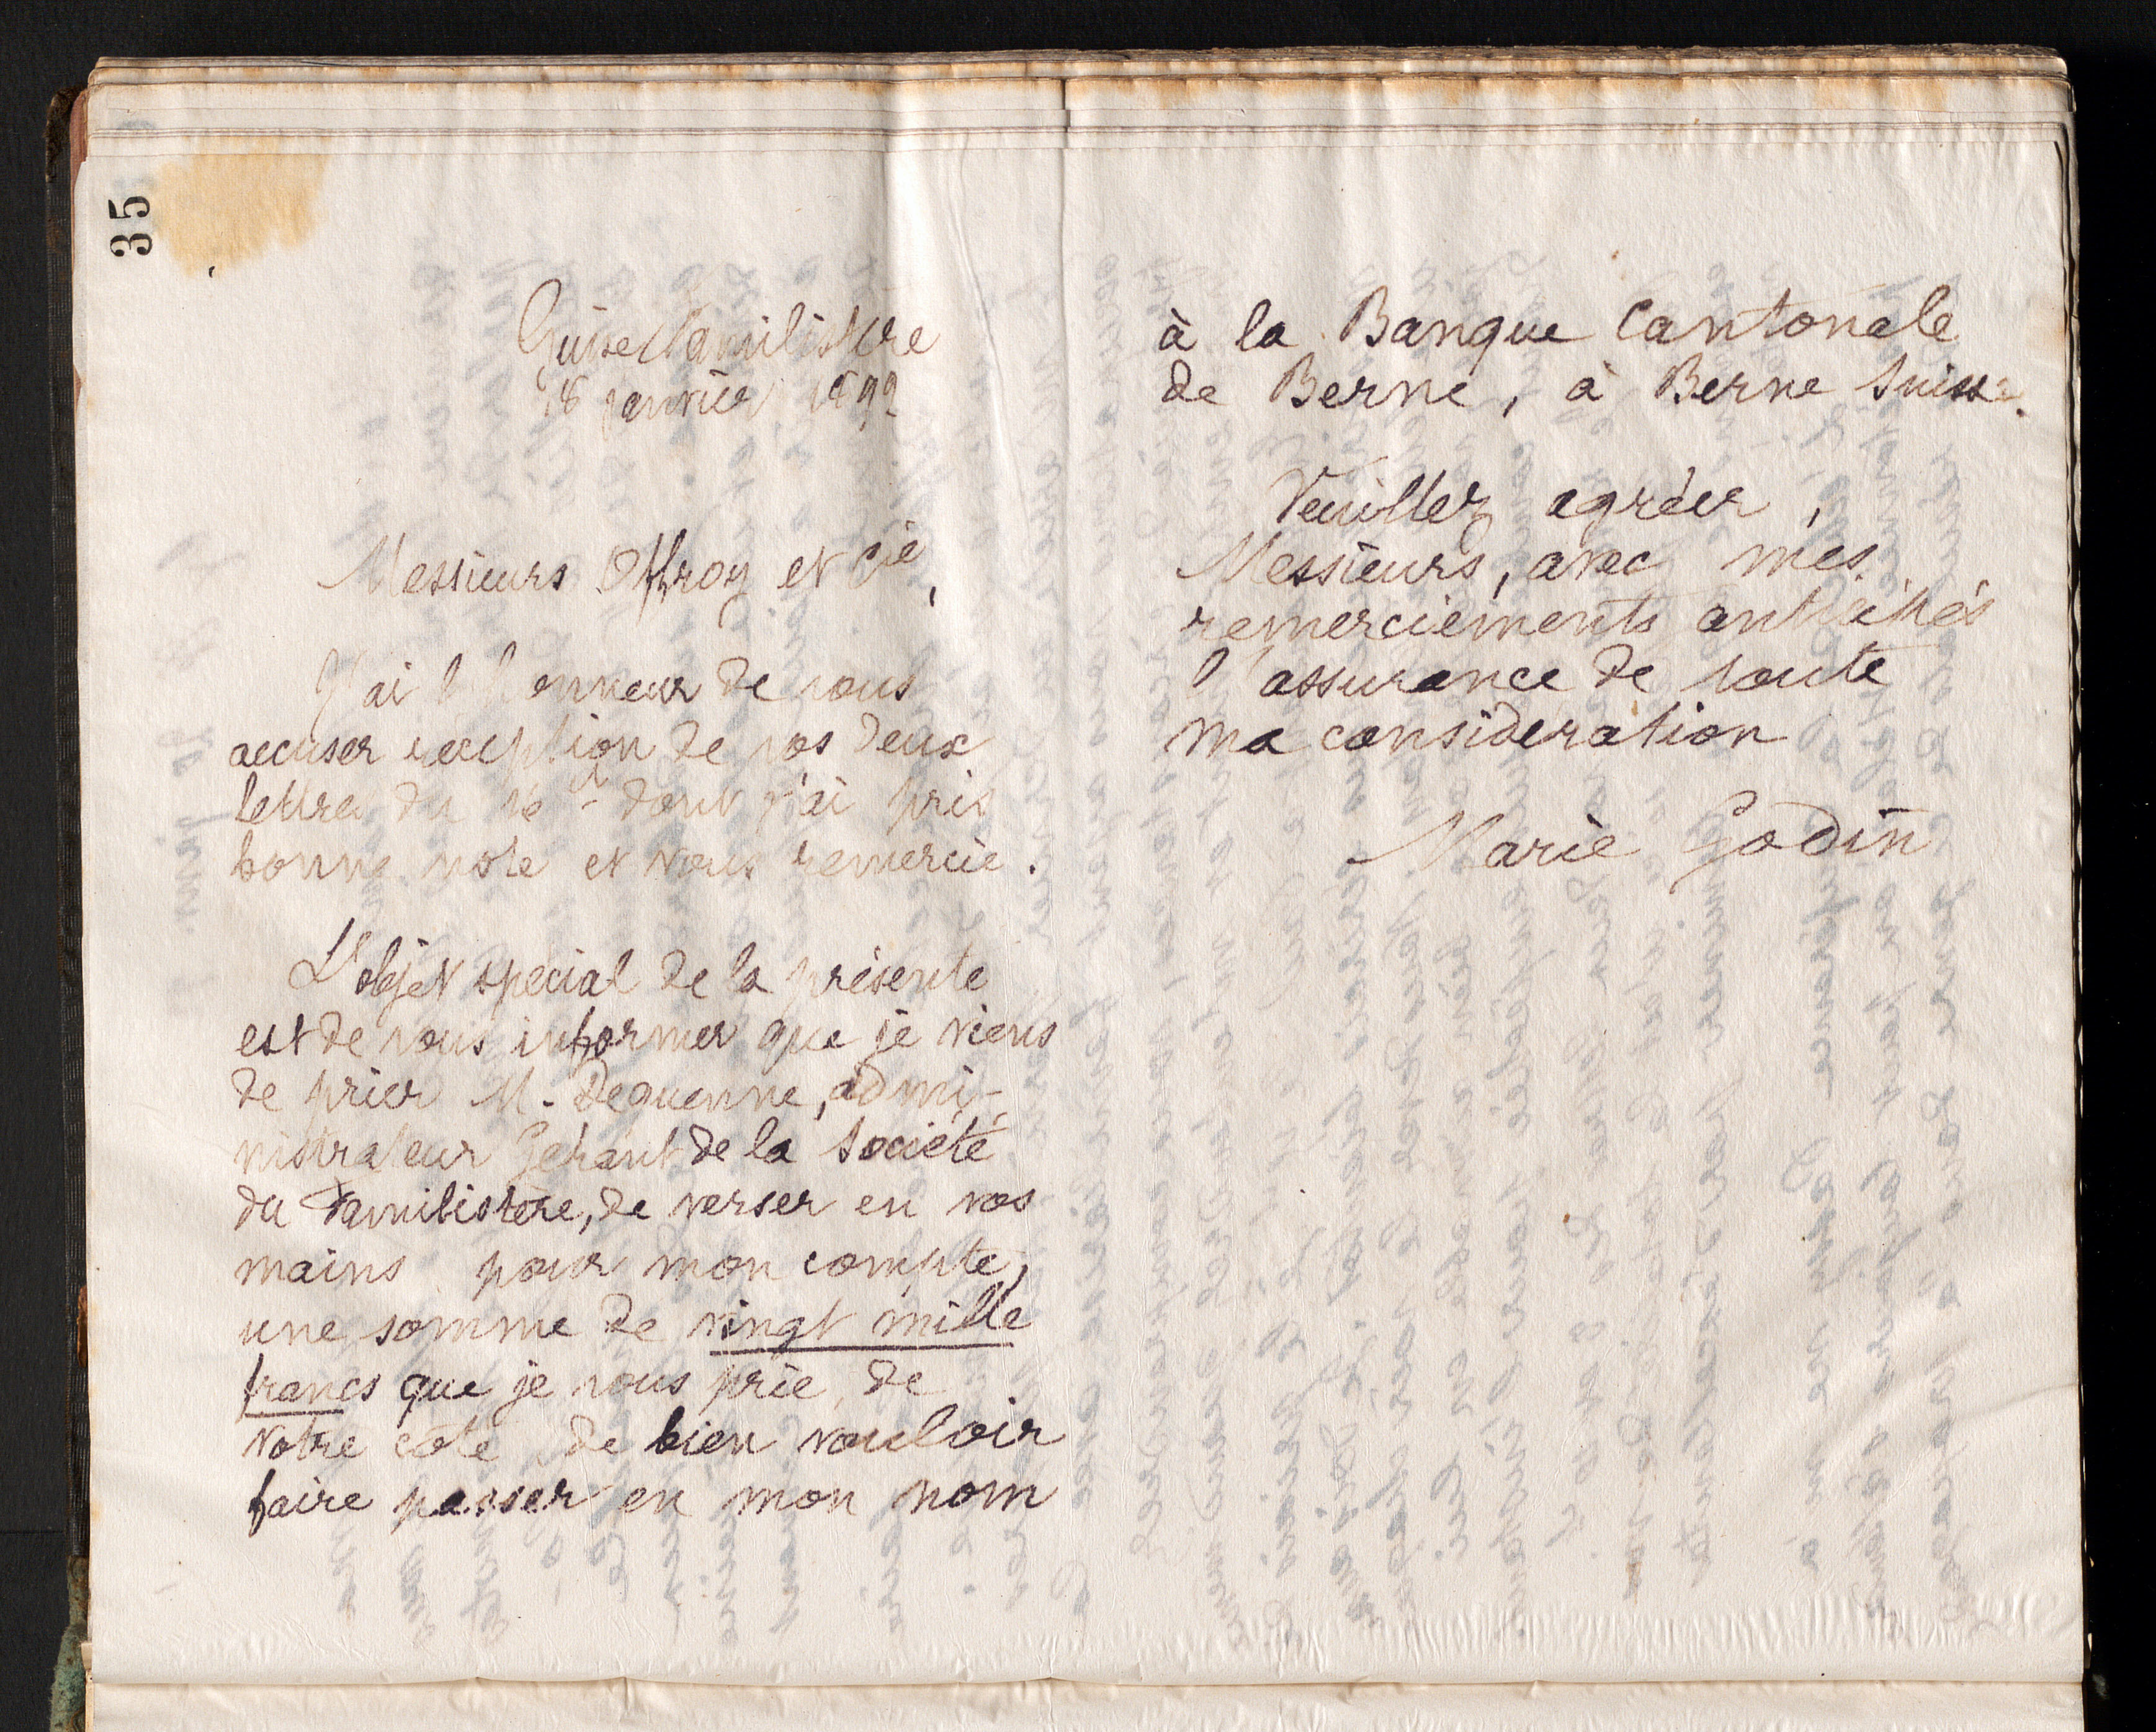 35
Guise Familistère
18 janvier 1892
Messieurs Offroy et Cie,
J'ai l'honneur de vous
accuser réception de vos deux
lettres du 16 ct dont j'ai pris
bonne note et vous remercie.
L'objet spécial de la présente
est de vous informer que je viens
de prier M. Dequenne, admi-
nistrateur Gérant de la Société
du Familistère, de verser en vos
mains pour mon compte,
une somme de vingt mille
francs que je vous prie, de
votre côté, de bien vouloir
faire passer en mon nom
à la Banque Cantonale
de Berne, à Berne Suisse.
Veuillez agréer,
Messieurs, avec mes
remerciements anticipés
l'assurance de toute
ma considération
Marie Godin